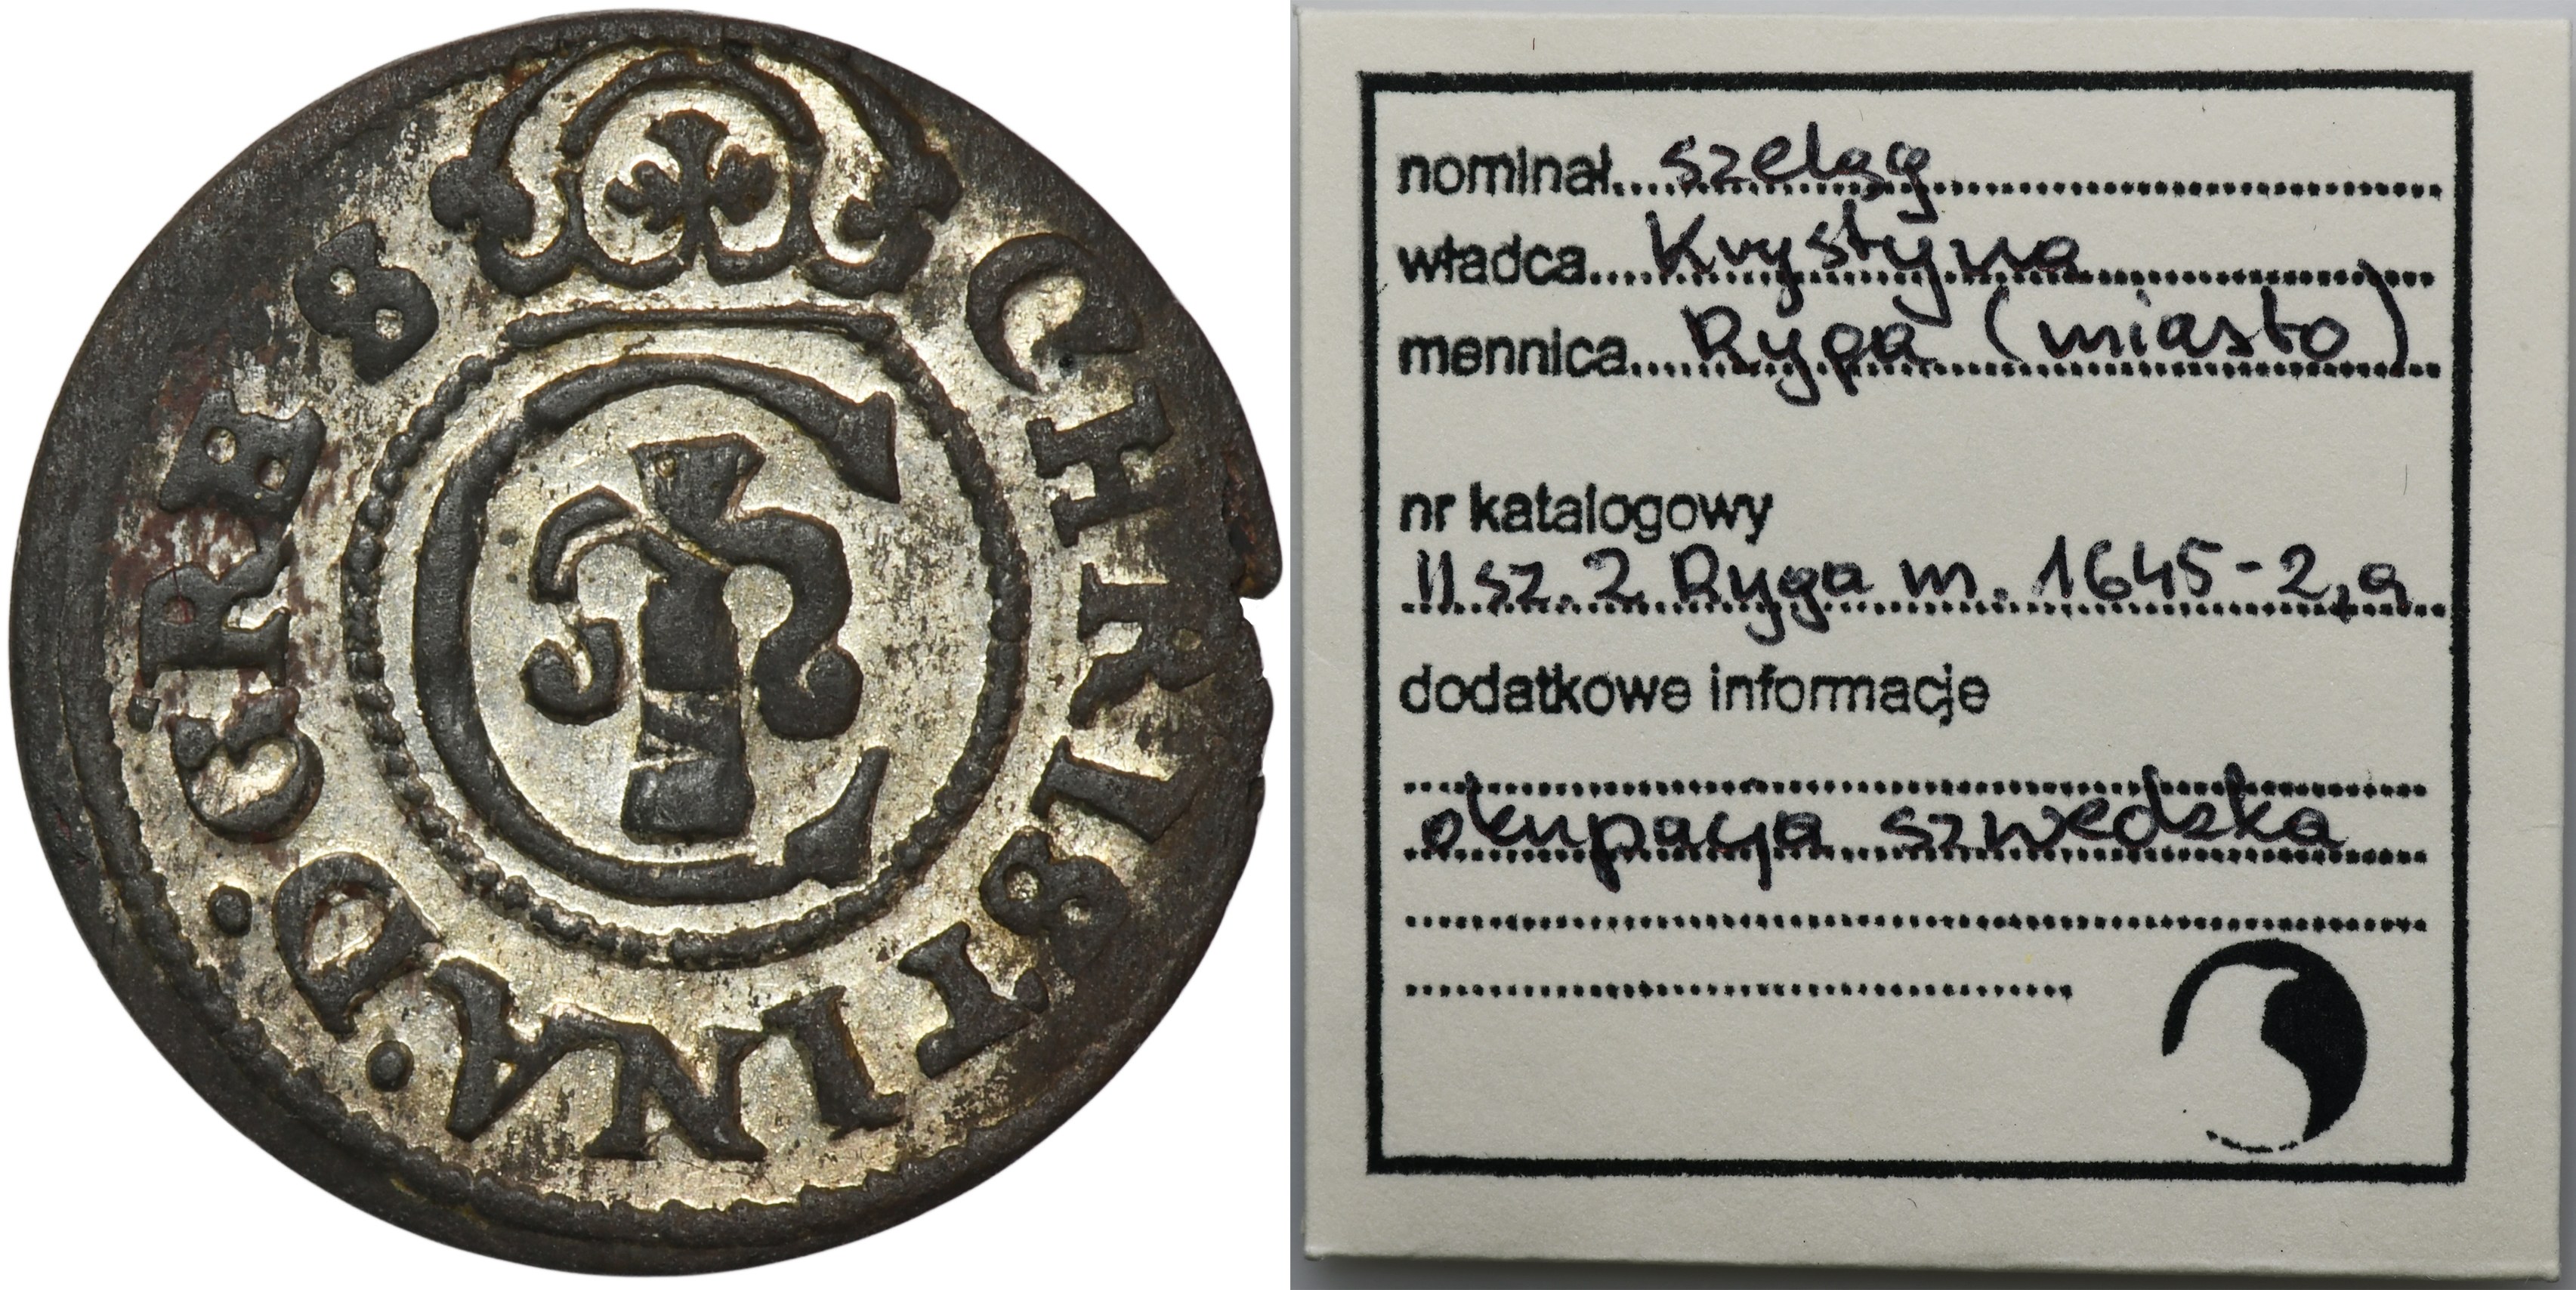 CHRISTINA·D·G·REB S
nominał szeląg
władca Krystyna
mennica Ryga (miasto)
nr katalogowy
11 sz. 2 Ryga m. 1645-2,a
dodatkowe informacje
okupacja szwedzka